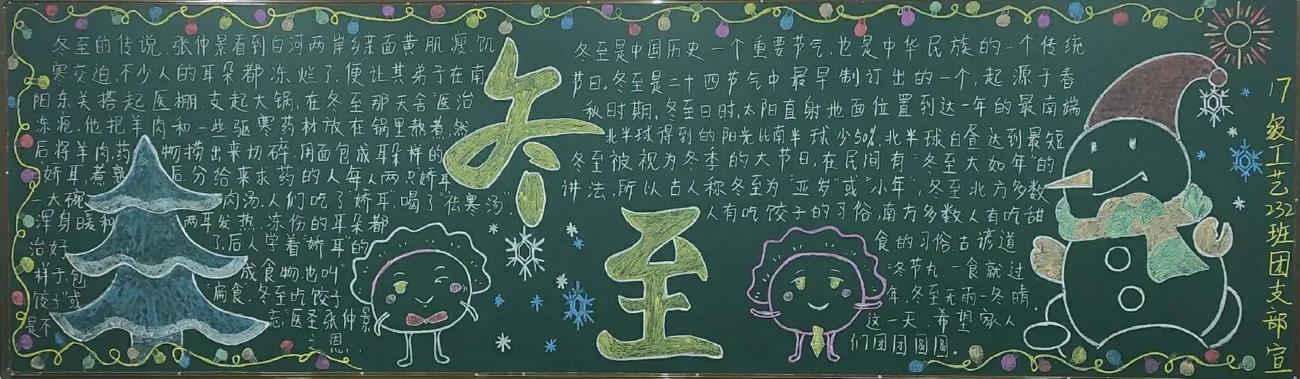 冬至的传说,张仲景看到白河两岸乡亲面黄肌瘦,饥
寒交迫,不少人的耳朵都冻烂了,便让其弟子在南
阳东关搭起医棚,支起大锅,在冬至那天舍医治
冻疮。他把羊肉和一些驱寒药材放在锅里熬煮,然
后将羊肉,药物捞出来切碎,用面包成耳朵样的
娇耳,煮熟后,分给来求药的人每人两只娇耳
一大碗肉汤.人们吃了娇耳,喝了“祛寒汤”,
浑身暖和两耳发热,冻伤的耳朵都
治好了后人学着“娇耳的
样子,包成食物,也叫“
饺子”或“扁食”.冬至吃饺子
是不忘“医圣”张仲景
之恩.
冬至
冬至是中国历史一个重要节气,也是中华民族的一个传统
节日。冬至是二十四节气中最早制订出的一个,起源于春
秋时期,冬至日时,太阳直射地面位置到达一年的最南端
北半球得到的阳光比南半球少50%,北半球白昼达到最短
冬至被视为冬季的大节日,在民间有“冬至大如年”的
讲法,所以古人称冬至为“亚岁”或“小年”,冬至北方多数
人有吃饺子的习俗,南方多数人有吃甜
食的习俗古谚道
“冬节丸,一食就过
年,冬至无雨一冬晴,
这一天,希望家人
们团团圆圆。
17级工艺232班团支部宣